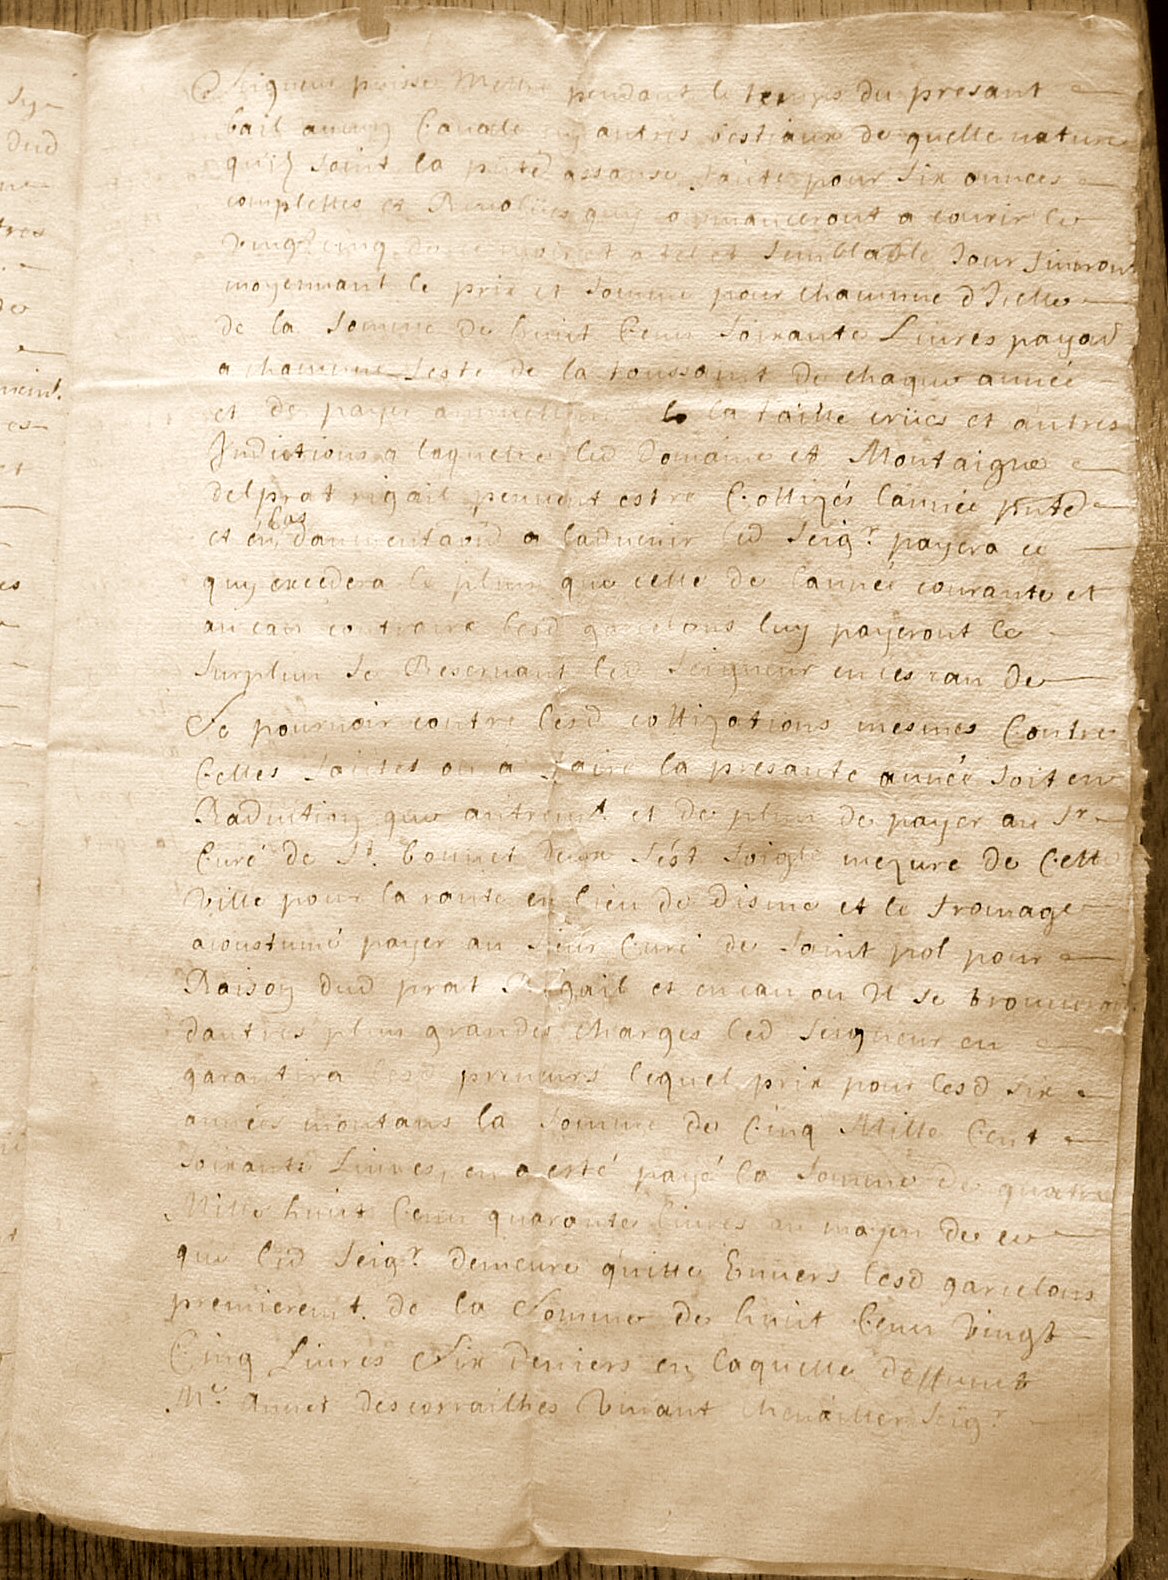 Seigneur puisse Mettre pendant le temps du presant
bail aucung Cavale ny autres bestiaux de quelle nature
quilz soint la pnte assanse faite pour six années
complettes et Revolues quy commanceront a courir le
vingt cinq et a tel et semblable Jour finiron
moyennant le prix et somme pour chacunne d'Icelles
de la somme de huict Cens soixante Livres payad
a chacunne feste de la toussaint de chaque année
et de payer annuellem la taille crües et autres
Indictions a laquelle led Domaine et Montaigne
delprat rigail peuvent estre Cottizés lannée pnte
et en cas daumentaõn a ladvenir led Seigr. payera ce
quy excedera le plus que celle de lannée courante et
au cas contraire lesd garcelons luy payeront le
surplus se Reservant led Seigneur en ces cas de
Se pourvoir contre lesd cottizations mesmes Contre
Celles faites ou a faire la presante année soit en
Raduction que autremt. et de plus de payer au Sr
Curé de St. bonnet deux sest. soigle mezure de Cette
ville pour la rante en lieu de disme et le fromage
acoustumé payer au sieur Curé de Saint pol pour
Raison dud prat Rigail et en cas ou Il se trouverai
dautres plus grandes charges led Seigneur en
garantira lesd preneurs lequel prix pour lesd six
années montans la somme de Cinq Mille Cent
soixante Livres, en a esté payé la somme de quatre
Mille huict Cens quarante livres au moyen de ce
que led Seigr. demeure quitte Envers lesd garcelons
premieremt. de la Somme de huict Cens vingt
Cinq Livres Six deniers en laquelle deffunct
Mre Annet descorrailhes vivant chevallier Seigr.